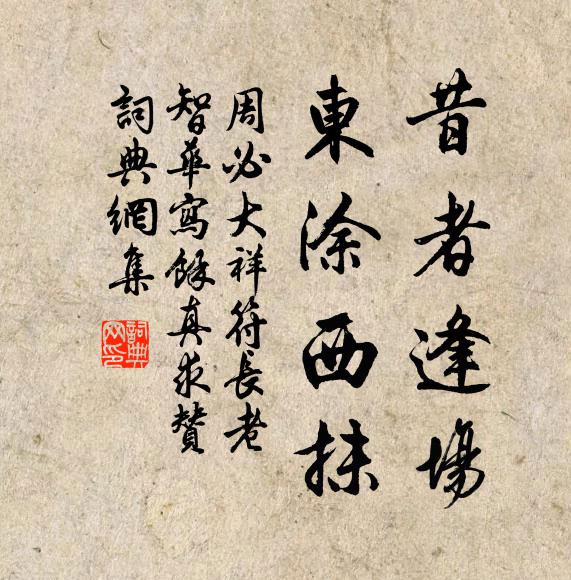 昔者逢場
東涂西抹
周必大祥符長老
智華寫餘真求贊
詞典網集
詞典网印